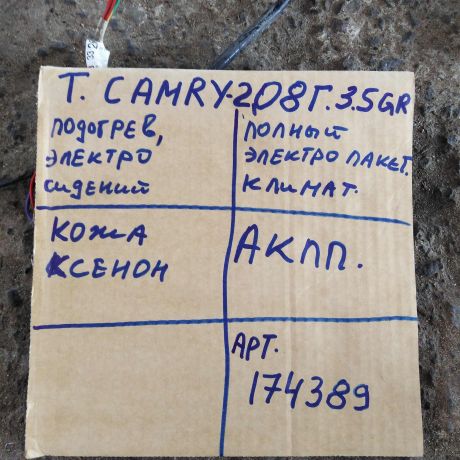 Т. CAMRY-208Г. 3.5GR
ПОДОГРЕВ,
ЭЛЕКТРО
СИДЕНИЙ
ПОЛНЫЙ
ЭЛЕКТРО ПАКЕТ.
КЛИМАТ.
КОЖА
КСЕНОН
АКПП.
АРТ.
174389